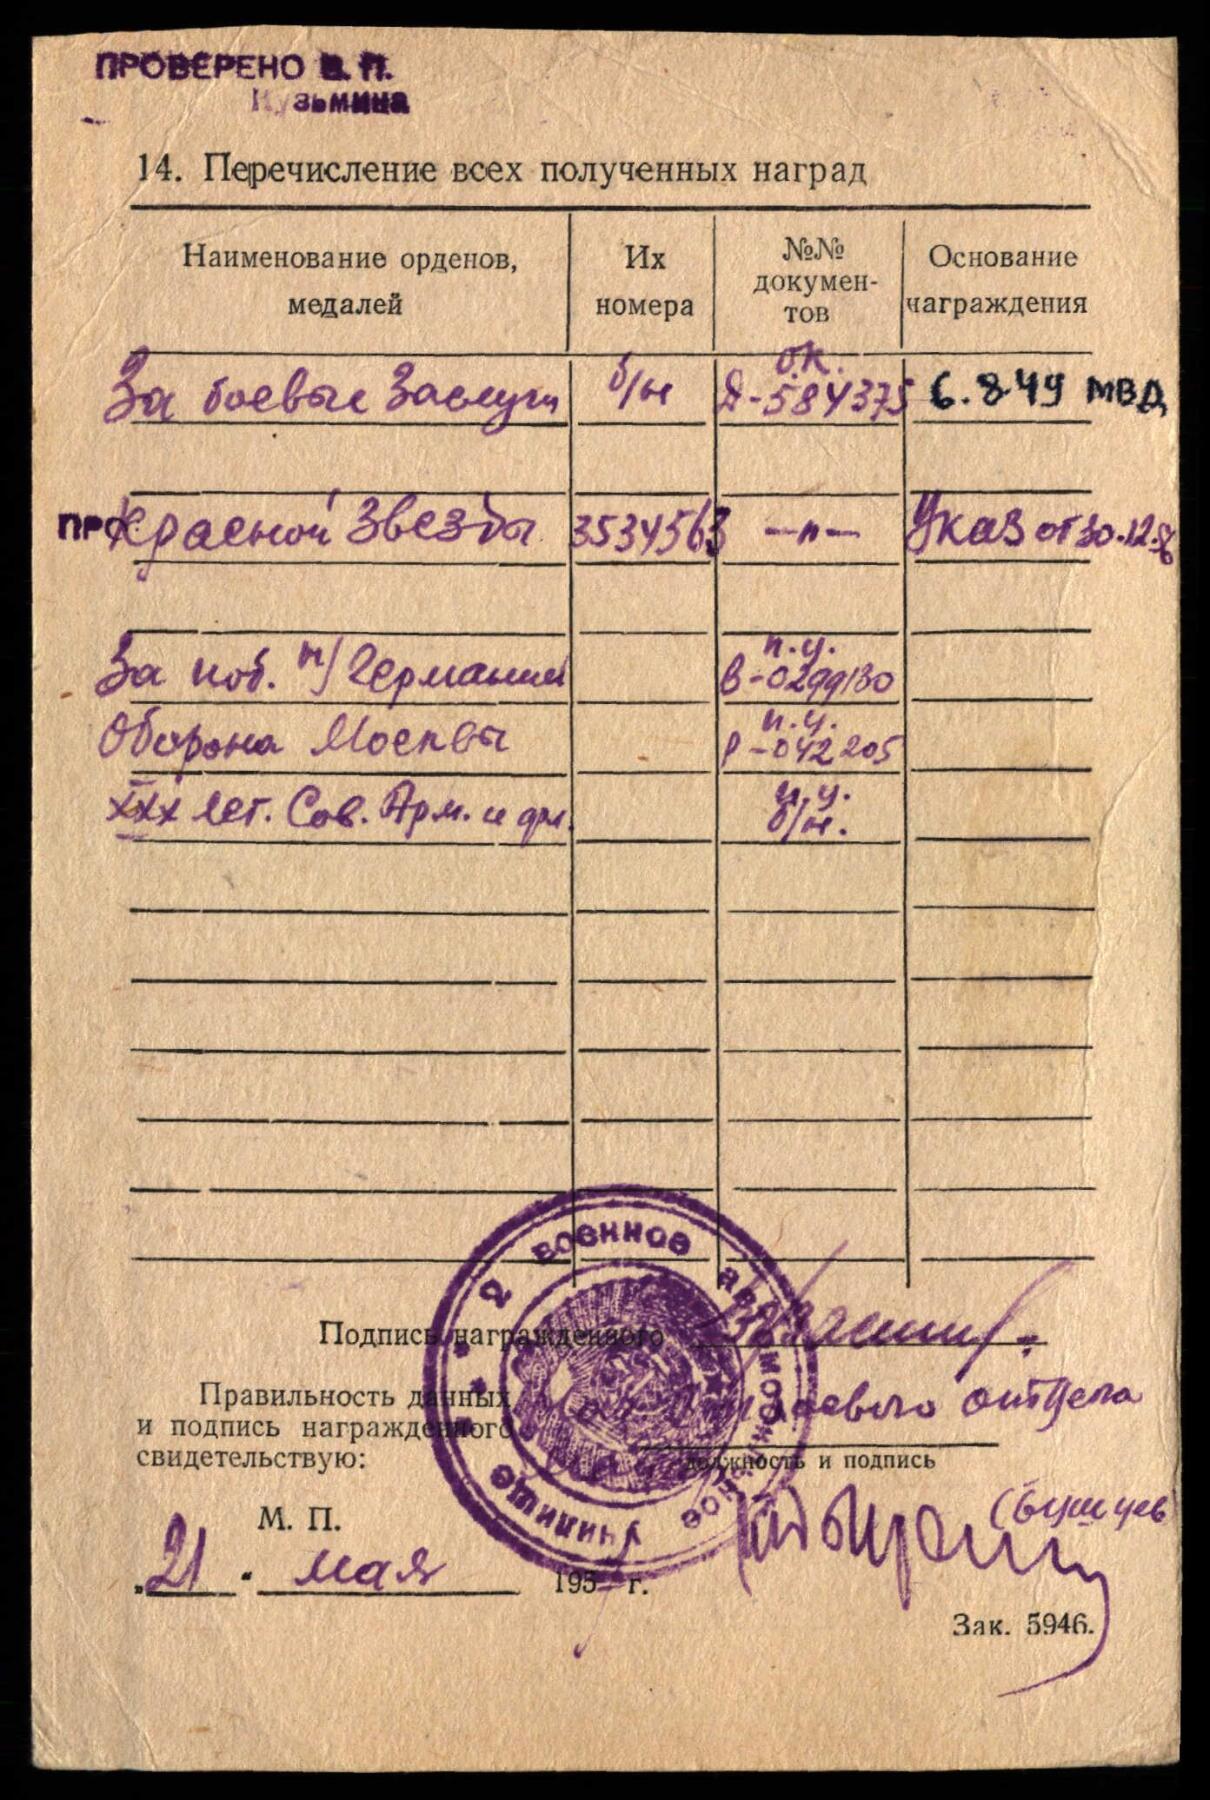 ПРОВЕРЕНО В. П.
Кузьмина
14. Перечисление всех полученных наград
Наименование орденов, медалей
Их номера
№№ докумен-
тов
Основание награждения
За боевые Заслуги б/н о.к. Д-584375 6.8.49 МВД
ПРО Красной Звезды 3534563 —"— Указ от 30.12.56
За поб. н/Германией п.у. В-0299130
Оборона Москвы п.у. Р-042205
XXX лет. Сов. Арм. и фл. п.у. б/н.
2 военное автомобильное училище
Подпись награжденного
Правильность данных
и подпись награжденного
свидетельствую:
отдела
должность и подпись
М. П.
„21" мая 195 г.
Зак. 5946.